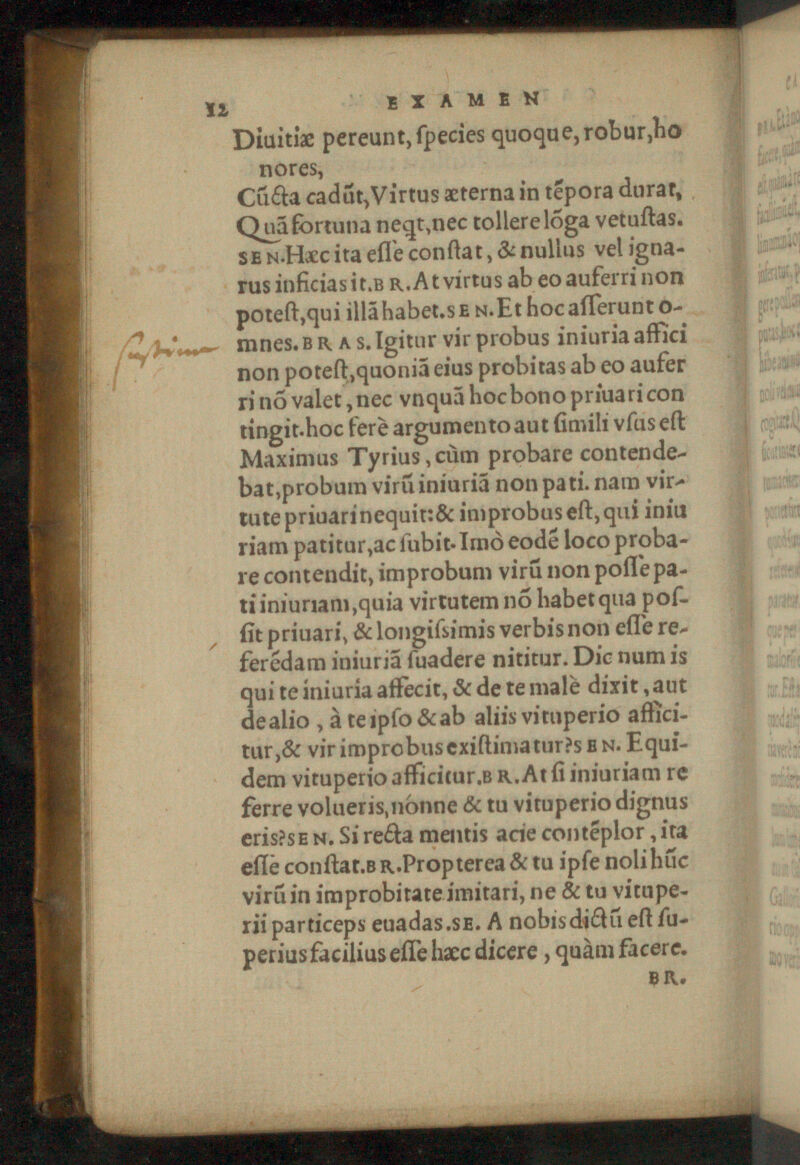 12 EXAMEN
Diuitiæ pereunt, ſpecies quoque, robur, ho
nores,
Cũcta cadũt, Virtus æterna in tẽpora durat,
Quã fortuna neqt, nec tollere lõga vetuſtas.
SEN. Hæc ita eſſe conſtat, & nullus vel igna-
rus inficias it. BR. At virtus ab eo auferri non
poteſt, qui illã habet. SEN. Et hoc aſſerunt o-
mnes. BRAS. Igitur vir probus iniuria affici
non poteſt, quoniã eius probitas ab eo aufer
ri nõ valet, nec vnquã hoc bono priuari con
tingit. hoc ferè argumento aut ſimili vſus eſt
Maximus Tyrius, cùm probare contende-
bat, probum virũ iniuriã non pati. nam vir-
tute priuari nequit: & improbus eſt, qui iniu
riam patitur, ac ſubit. Imò eodẽ loco proba-
re contendit, improbum virũ non poſſe pa-
ti iniuriam, quia virtutem nõ habet qua poſ-
ſit priuari, & longiſsimis verbis non eſſe re-
ferẽdam iniuriã ſuadere nititur. Dic num is
qui te iniuria affecit, & de te malè dixit, aut
de alio, à te ipſo & ab aliis vituperio affici-
tur, & vir improbus exiſtimatur? SEN. Equi-
dem vituperio afficitur. BR. At ſi iniuriam re
ferre volueris, nónne & tu vituperio dignus
eris? SEN. Si recta mentis acie contẽplor, ita
eſſe conſtat. BR. Propterea & tu ipſe noli hũc
virũ in improbitate imitari, ne & tu vitupe-
rii particeps euadas. SE. A nobis dictũ eſt ſu-
perius facilius eſſe hæc dicere, quàm facere.
BR.